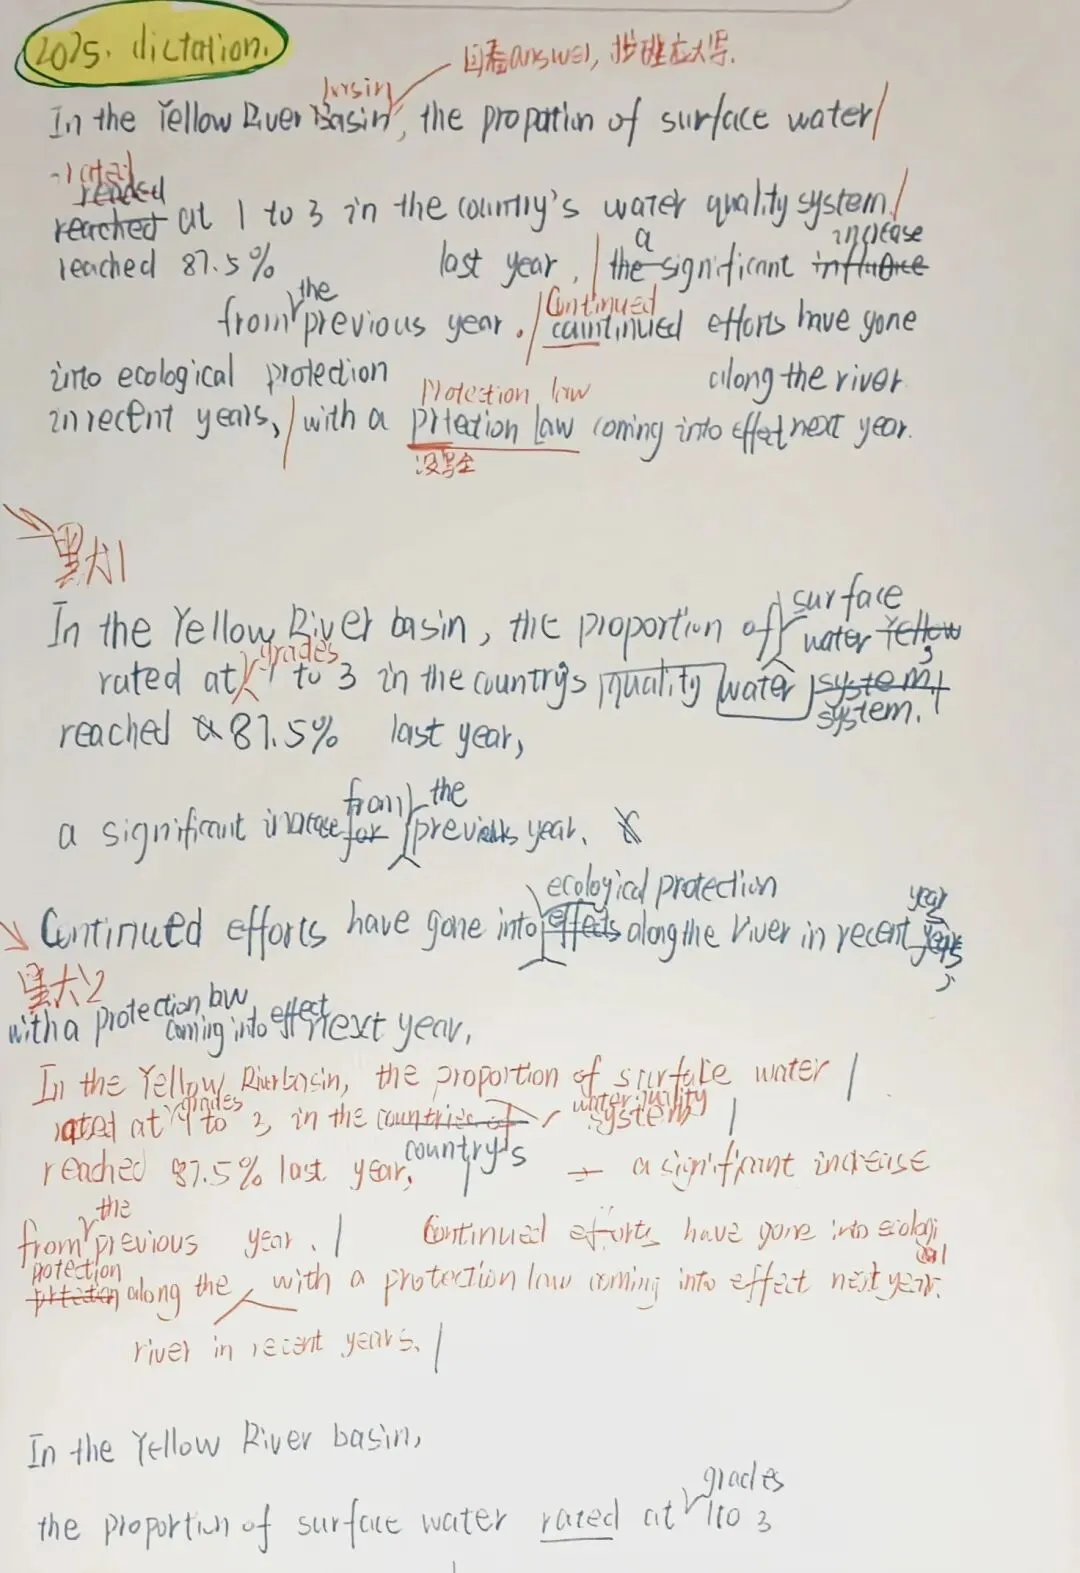 2025. dictation.
answer,
basin
In the Yellow River Basin, the propation of surface water/
rated
reached at 1 to 3 in the country's water quality system/
reached 87.5% last year, / the a significant influence increase
from the previous year. / caintinued Continued efforts have gone
into ecological protection along the river
in recent years, / with a prtection law coming into effect next year.
protection law
没写全
默大1
In the Yellow River basin, the proportion of surface water Yellow,
rated at grades 1 to 3 in the country's quality water system,
system.
reached 87.5% last year,
a significant increase for from the previous year.
Continued efforts have gone into effects ecological protection along the river in recent years,
year
默大2
with a protection law coming into effect next year,
In the Yellow River basin, the proportion of surface water |
rated at grades 1 to 3 in the countries of water quality system |
country's
reached 87.5% last year, a significant increase
from the previous year. | Continued efforts have gone into ecological
protection prtection along the with a protection law coming into effect next year.
river in recent years. |
In the Yellow River basin,
the proportion of surface water rated at grades 1 to 3